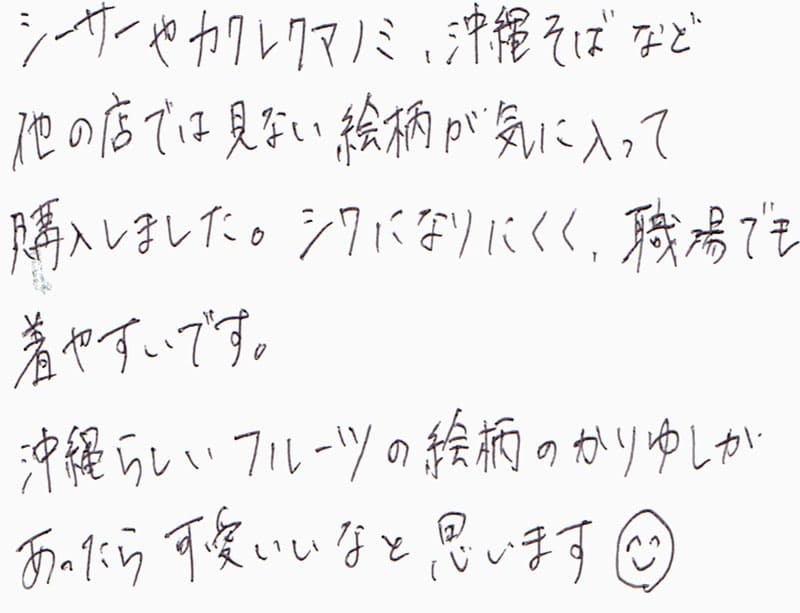 シーサーやカクレクマノミ、沖縄そばなど
他の店では見ない絵柄が気に入って
購入しました。シワになりにくく、職場でも
着やすいです。
沖縄らしいフルーツの絵柄のかりゆしが
あったら可愛いいなと思います